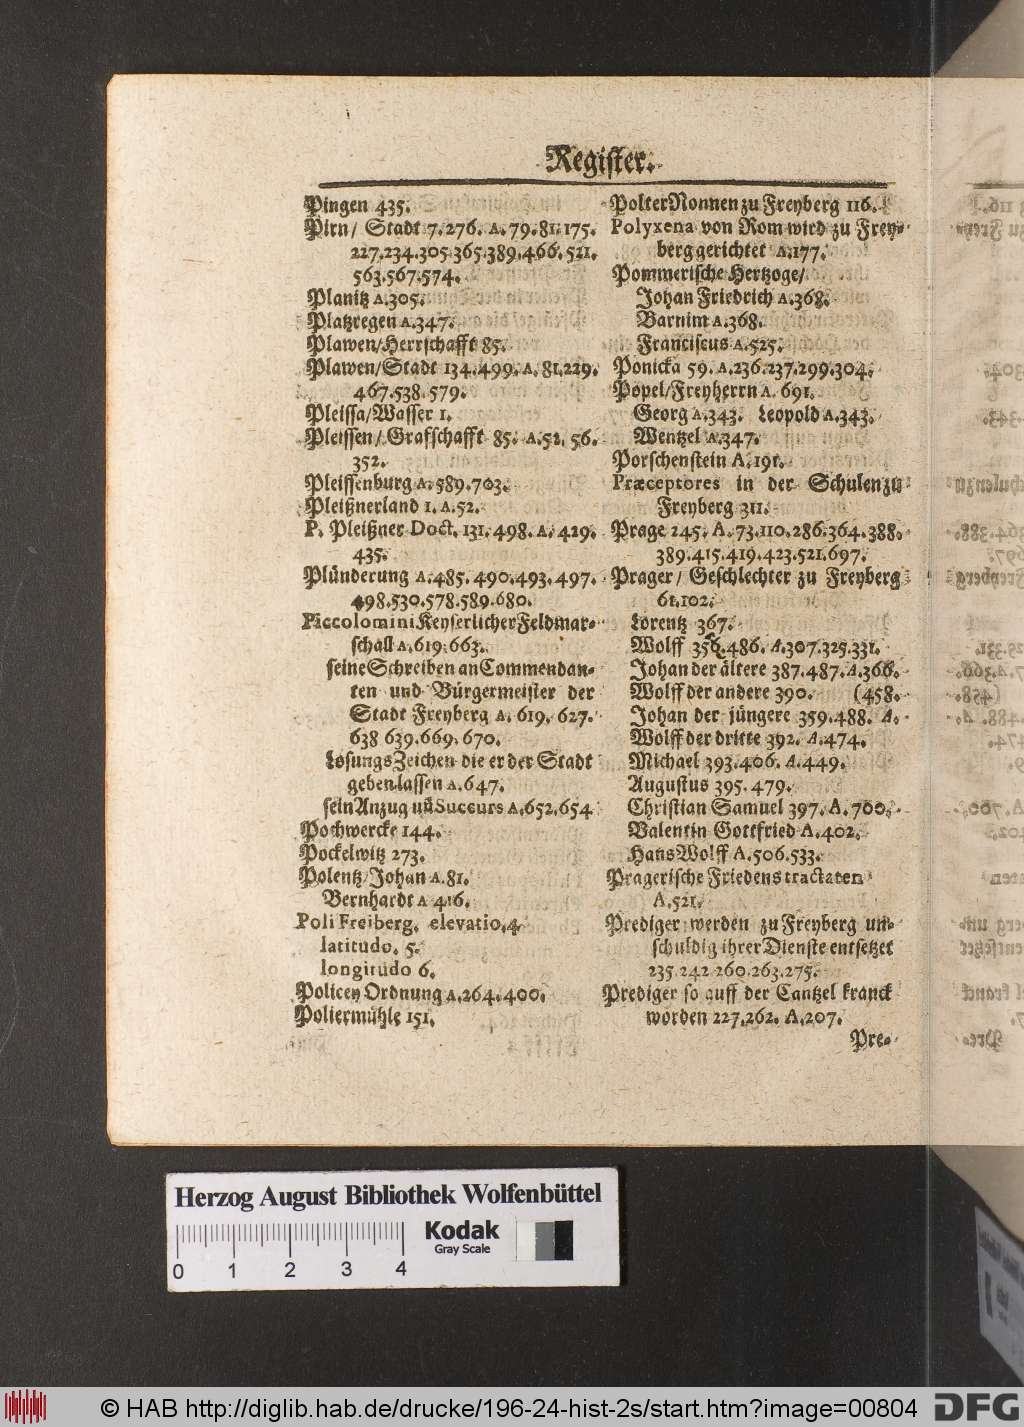 Register.
Pingen 435.
Pirn/ Stadt 7. 276. A. 79. 81. 175.
227. 234. 305. 365. 389. 466. 521.
563. 567. 574.
Planitz A. 305.
Platzregen A. 347.
Plawen/Herrschafft 85.
Plawen/Stadt 134. 499. A. 81. 229.
467. 538. 579.
Pleissa/Wasser 1.
Pleissen/ Grafschafft 85. A. 52. 56.
352.
Pleissenburg A. 589. 703.
Pleißnerland 1. A. 52.
P. Pleißner Doct. 131. 498. A. 429.
435.
Plünderung A. 485. 490. 493. 497.
498. 530. 578. 589. 680.
Piccolomini Keyserlicher Feldmar-
schall A. 619. 663.
seine Schreiben an Commendan-
ten und Bürgermeister der
Stadt Freyberg A. 619. 627.
638 639. 669. 670.
Losungs Zeichen die er der Stadt
geben lassen A. 647.
sein Anzug uñ Succurs A. 652. 654
Pochwercke 144.
Pockelwitz 273.
Polentz/Johan A. 81.
Bernhardt A 416.
Poli Freiberg. elevatio. 4
latitudo. 5.
longitudo 6.
Policey Ordnung A. 264. 400.
Poliermühle 151.
Polter Nonnen zu Freyberg 116.
Polyxena von Rom wird zu Frey-
berg gerichtet A. 177.
Pommerische Hertzoge/
Johan Friedrich A. 368.
Barnim A. 368.
Franciscus A. 525.
Ponicka 59. A. 236. 237. 299. 304.
Popel/Freyherrn A. 691.
Georg A. 343. Leopold A. 343.
Wentzel A. 347.
Porschenstein A. 191.
Præceptores in der Schulen zu
Freyberg 311.
Prage 245. A. 73. 110. 286. 364. 388.
389. 415. 419. 423. 521. 697.
Prager/ Geschlechter zu Freyberg
61. 102.
Lorentz 367.
Wolff 356. 486. A. 307. 325. 331.
Johan der ältere 387. 487. A. 366.
Wolff der andere 390. (458.
Johan der jüngere 359. 488. A.
Wolff der dritte 392. A. 474.
Michael 393. 406. A. 449.
Augustus 395. 479.
Christian Samuel 397. A. 700.
Valentin Gottfried A. 402.
Hans Wolff A. 506. 533.
Pragerische Friedens tractaten
A. 521.
Prediger werden zu Freyberg un-
schuldig ihrer Dienste entsetzet
235 242 260. 263. 275.
Prediger so auff der Cantzel kranck
worden 227. 262. A. 207.
Pre-
Herzog August Bibliothek Wolfenbüttel
Kodak
Gray Scale
0 1 2 3 4
© HAB http://diglib.hab.de/drucke/196-24-hist-2s/start.htm?image=00804
DFG